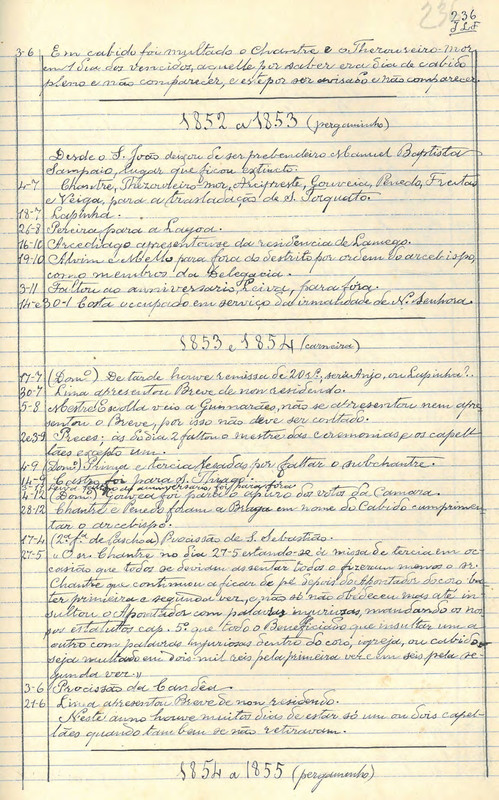 236
J L F
3-6 Em cabido foi multado o Chantre e o Thezoureiro-mor
em 1 dia dos vencidos, aquelle por saber era dia de cabido
pleno e não comparecer, e este por ser avisado e não comparecer.
1852 a 1853 (pergaminho)
Desde o S. João deixou de ser prebendeiro Manuel Baptista
Sampaio, lugar que ficou extincto.
4-7 Chantre, Thezoureiro-mor, Arcipreste, Gouveia, Penedo, Freitas
e Veiga, para a trasladação de S. Torquato.
18-7 Lapinha.
25-8 Pereira para a Lagoa.
16-10 Arcediago apresentou-se da residencia de Lamego.
19-10 Alvim e Mello para fora do destrito por ordem do arcebispo,
como membros da Delegacia.
3-11 Faltou ao anniversario, Leiva, para fora.
14 e 30-1 Costa occupado em serviço da irmandade de N. Senhora.
1853 e 1854 (carneira)
17-7 (Domº) De tarde houve remissa de 20 rs., seria Anjo, ou Lapinha?.
30-7 Lima apresentou Breve de non residendo.
5-8 Mestre Escolla veio a Guimarães, não se apresentou nem apre-
sentou o Breve, por isso não deve ser contado.
2 e 3-9 Preces; ás do dia 2 faltou o mestre das ceremonias e os capel-
lães excepto um.
4-9 (Domº) Prima e tercia rezadas por faltar o subchantre.
14-9 Castro foi para S. Thiago.
Leiva faltou ao anniversario, foi para fora
4-12 (Domº) Gouveia foi para o apuro dos votos da Camara.
28-12 Chantre e Penedo foram a Braga em nome do Cabido cumprimen-
tar o arcebispo.
17-4 (2ª fª de Paschoa) Procissão de S. Sebastião.
27-5 "O sr. Chantre no dia 27-5 estando-se de missa de tercia em oc-
casião que todos se deviam assentar todos o fizeram menos o sr.
Chantre que continuou a ficar de pé depois do Apontador do coro ba-
ter primeira e segunda vez, e não só não obdeceu mas até in-
sultou o Apontador com palavras injuriozas, mandando os nos-
sos estatutos cap. 5º que todo o Beneficiado que insultar um a
outro com palavras injuriosas dentro do coro, igreja, ou cabido
seja multado em dois mil reis pela primeira vez e em seis pela se-
gunda vez."
3-6 Procissão da Candêa
21-6 Lima apresentou Breve de non residendo.
Neste anno houve muitos dias de estar só um ou dois capel-
lães quando tambem se não retiravam.
1854 a 1855 (pergamenho)